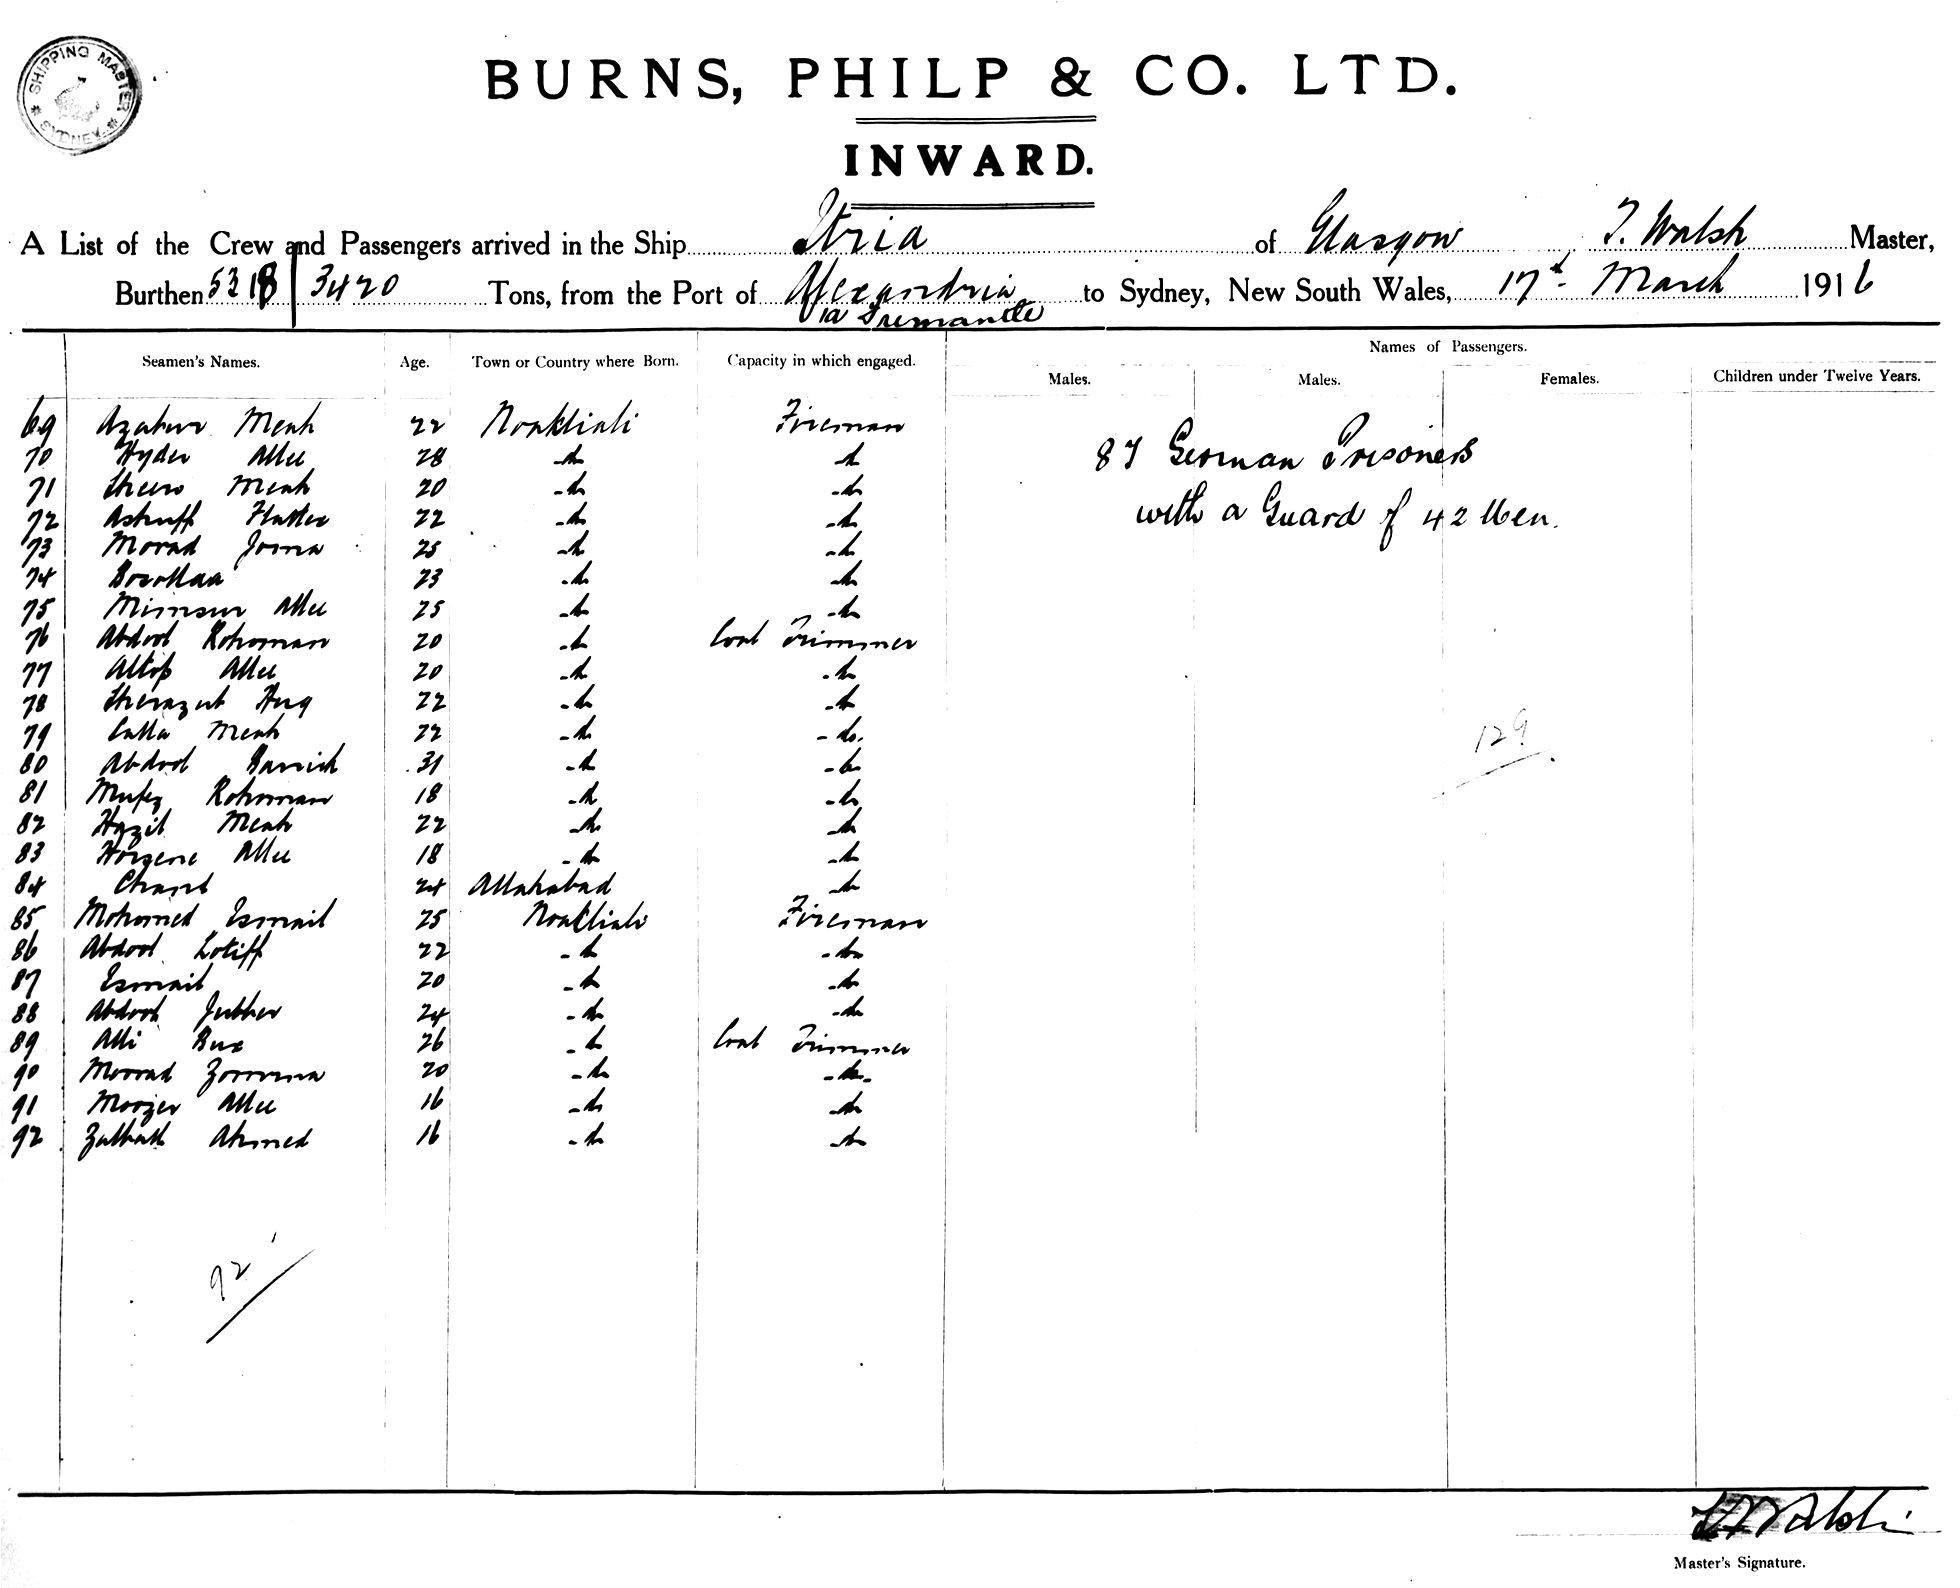 SHIPPING MASTER
* SYDNEY *
BURNS, PHILP & CO. LTD.
INWARD.
A List of the Crew and Passengers arrived in the Ship Itria of Glasgow, T. Walsh Master,
Burthen 5318 | 3420 Tons, from the Port of Alexandria to Sydney, New South Wales, 17th March 1916
via Fremantle
Seamen's Names. Age. Town or Country where Born. Capacity in which engaged. Names of Passengers.
Males. Males. Females. Children under Twelve Years.
69 Meah 22 Noakliali Fireman
70 Hyder Allee 28 -do -do
71 Meah 20 -do -do
72 22 -do -do
73 Morad Joma 25 -do -do
74 23 -do -do
75 Allee 25 -do -do
76 Abdool Rohoman 20 -do Coal Trimmer
77 Allop Allee 20 -do -do
78 Huq 22 -do -do
79 Meah 22 -do -do.
80 Abdool 31 -do -do
81 Mufez Rohoman 18 -do -do
82 Meah 22 -do -do
83 Allee 18 -do -do
84 Chand 24 Allahabad -do
85 Mohomed Esmail 25 Noakliali Fireman
86 Abdool Lotiff 22 -do -do
87 Esmail 20 -do -do
88 Abdool Jubber 24 -do -do
89 Alli Bux 26 -do Coal Trimmer
90 20 -do -do-
91 Moozer Allee 16 -do -do
92 Ahmed 16 -do -do
87 German Prisoners
with a Guard of 42 Men.
129
92
T. Walsh
Master's Signature.